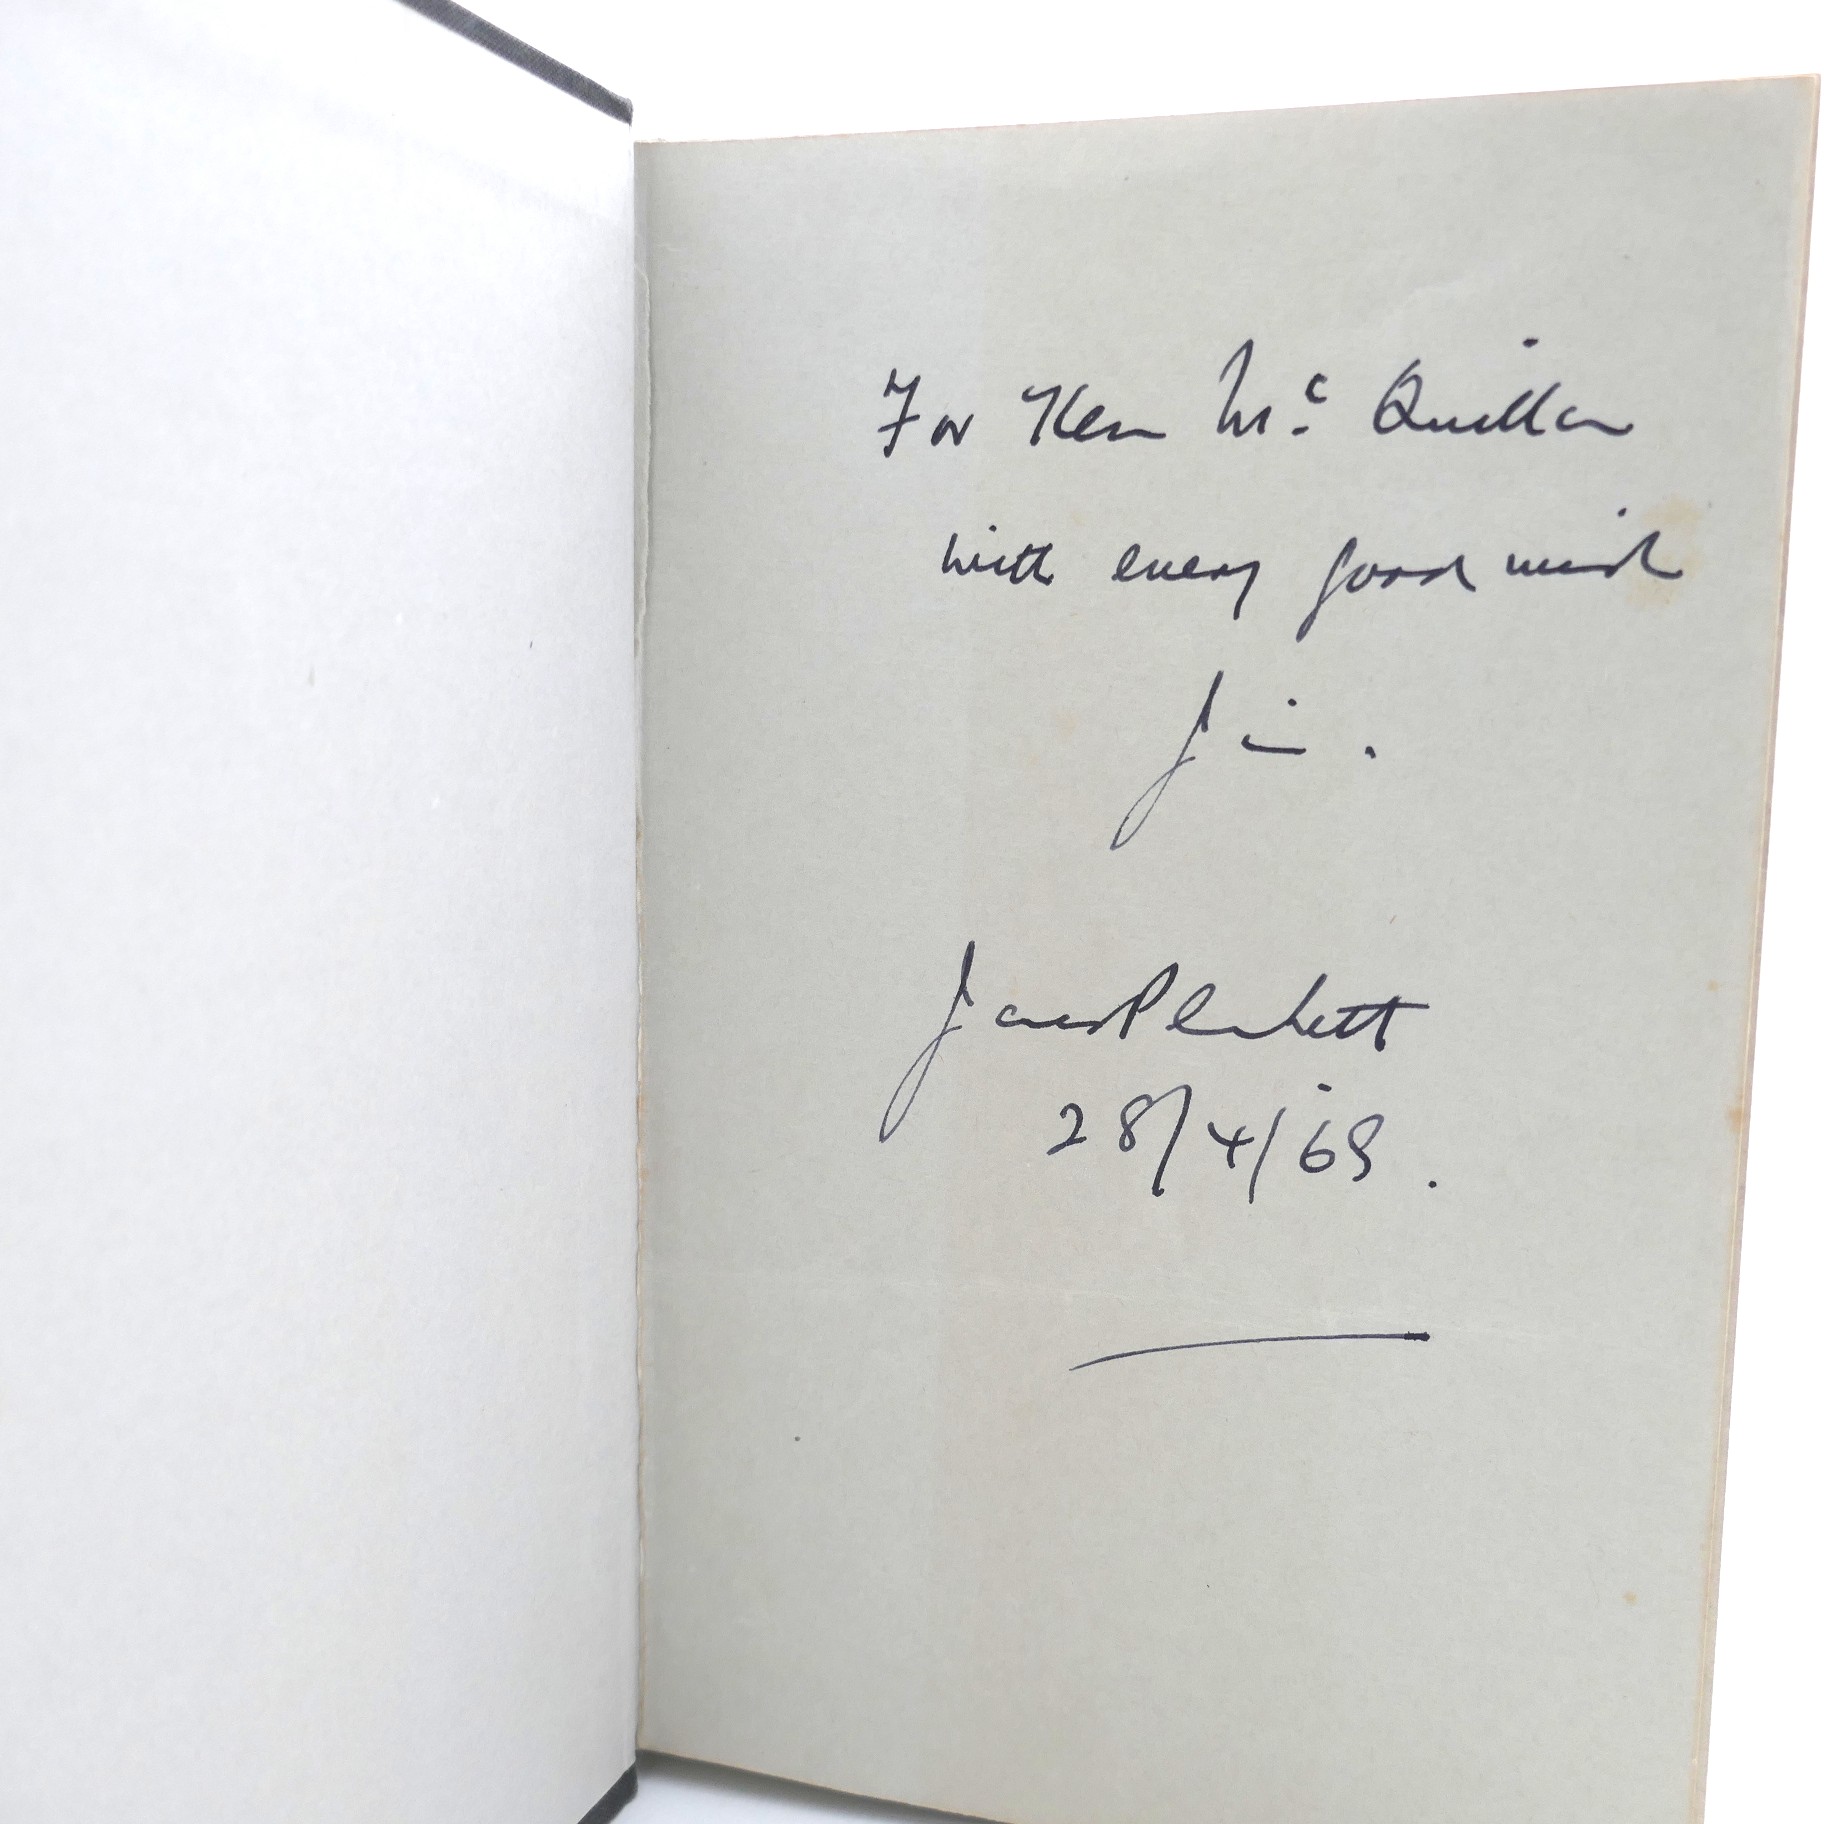 For Ken Mc Quillan
with every good wish
Jim.
James Plunkett
28/4/69.